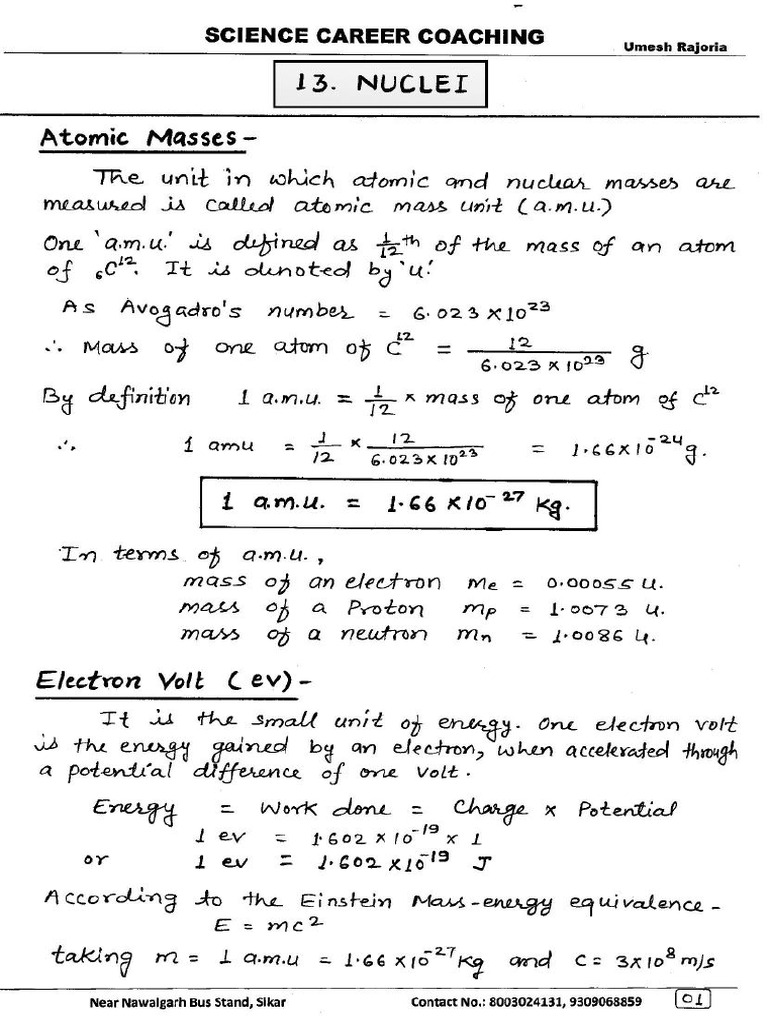 SCIENCE CAREER COACHING
Umesh Rajoria
13. NUCLEI
Atomic Masses -
The unit in which atomic and nuclear masses are
measured is called atomic mass unit (a.m.u.)
One 'a.m.u.' is defined as 1/12 th of the mass of an atom
of ₆C¹². It is denoted by 'u'.
As Avogadro's number = 6.023 × 10²³
∴ Mass of one atom of C¹² = 12/(6.023 × 10²³) g
By definition 1 a.m.u. = 1/12 × mass of one atom of C¹²
∴ 1 amu = 1/12 × 12/(6.023 × 10²³) = 1.66 × 10⁻²⁴ g.
1 a.m.u. = 1.66 × 10⁻²⁷ Kg.
In terms of a.m.u.,
mass of an electron me = 0.00055 u.
mass of a Proton mp = 1.0073 u.
mass of a neutron mn = 1.0086 u.
Electron Volt (ev) -
It is the small unit of energy. One electron volt
is the energy gained by an electron, when accelerated through
a potential difference of one volt.
Energy = Work done = Charge × Potential
1 ev = 1.602 × 10⁻¹⁹ × 1
or 1 ev = 1.602 × 10⁻¹⁹ J
According to the Einstein Mass-energy equivalence -
E = mc²
taking m = 1 a.m.u = 1.66 × 10⁻²⁷ Kg and C = 3×10⁸ m/s
Near Nawalgarh Bus Stand, Sikar Contact No.: 8003024131, 9309068859 01